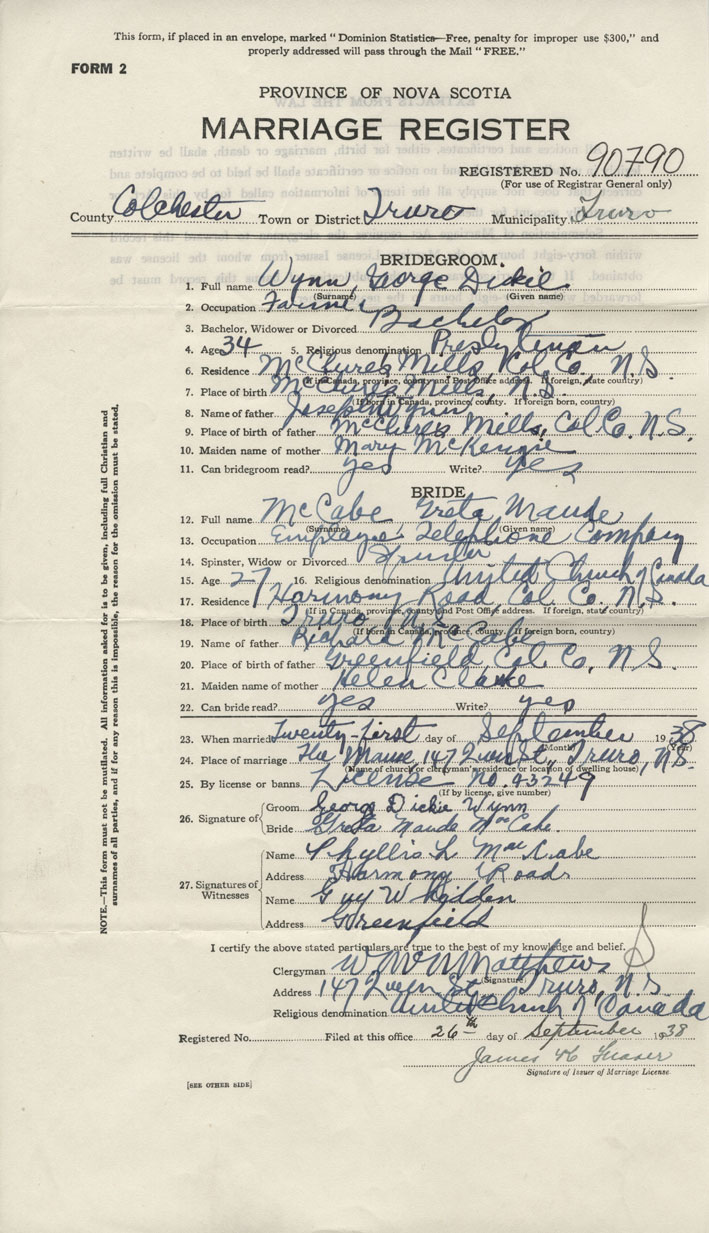 This form, if placed in an envelope, marked "Dominion Statistics—Free, penalty for improper use $300," and
properly addressed will pass through the Mail "FREE."
FORM 2
PROVINCE OF NOVA SCOTIA
MARRIAGE REGISTER
REGISTERED No. 90790
(For use of Registrar General only)
County Colchester Town or District Truro Municipality Truro
BRIDEGROOM.
1. Full name Wynn, George Dickie
(Surname) (Given name)
2. Occupation Farmer
3. Bachelor, Widower or Divorced Bachelor
4. Age 34 5. Religious denomination Presbyterian
6. Residence McClures Mills, Col. Co., N.S.
(If in Canada, province, county and Post Office address. If foreign, state country)
7. Place of birth McClures Mills, N.S.
(If born in Canada, province, county. If foreign born, country)
8. Name of father Joseph Wynn
9. Place of birth of father McClures Mills, Col Co. N.S.
10. Maiden name of mother Mary McKenzie
11. Can bridegroom read? yes Write? yes
BRIDE
12. Full name McCabe Greta Maude
(Surname) (Given name)
13. Occupation Employee Telephone Company
14. Spinster, Widow or Divorced Spinster
15. Age 27 16. Religious denomination United Church of Canada
17. Residence Harmony Road, Col. Co. N.S.
(If in Canada, province, county and Post Office address. If foreign, state country)
18. Place of birth Truro N.S.
(If born in Canada, province, county. If foreign born, country)
19. Name of father Richard McCabe
20. Place of birth of father Greenfield, Col Co, N.S.
21. Maiden name of mother Helen Clarke
22. Can bride read? yes Write? yes
23. When married Twenty-first day of September 1938
(Month) (Year)
24. Place of marriage The Manse, 147 Queen St., Truro, N.S.
(Name of church or clergyman's residence or location of dwelling house)
25. By license or banns License No. 93249
(If by license, give number)
26. Signature of
Groom George Dickie Wynn
Bride Greta Maude MacCabe
27. Signatures of Witnesses
Name Phyllis L MacCabe
Address Harmony Road
Name Guy W
Address Greenfield
NOTE.—This form must not be mutilated. All information asked for is to be given, including full Christian and
surnames of all parties, and if for any reason this is impossible, the reason for the omission must be stated.
I certify the above stated particulars are true to the best of my knowledge and belief.
Clergyman Matthews
(Signature)
Address 147 Queen St. Truro, N.S.
Religious denomination United Church of Canada
Registered No. Filed at this office 26th day of September 1938
James H Fraser
Signature of Issuer of Marriage License
[SEE OTHER SIDE]